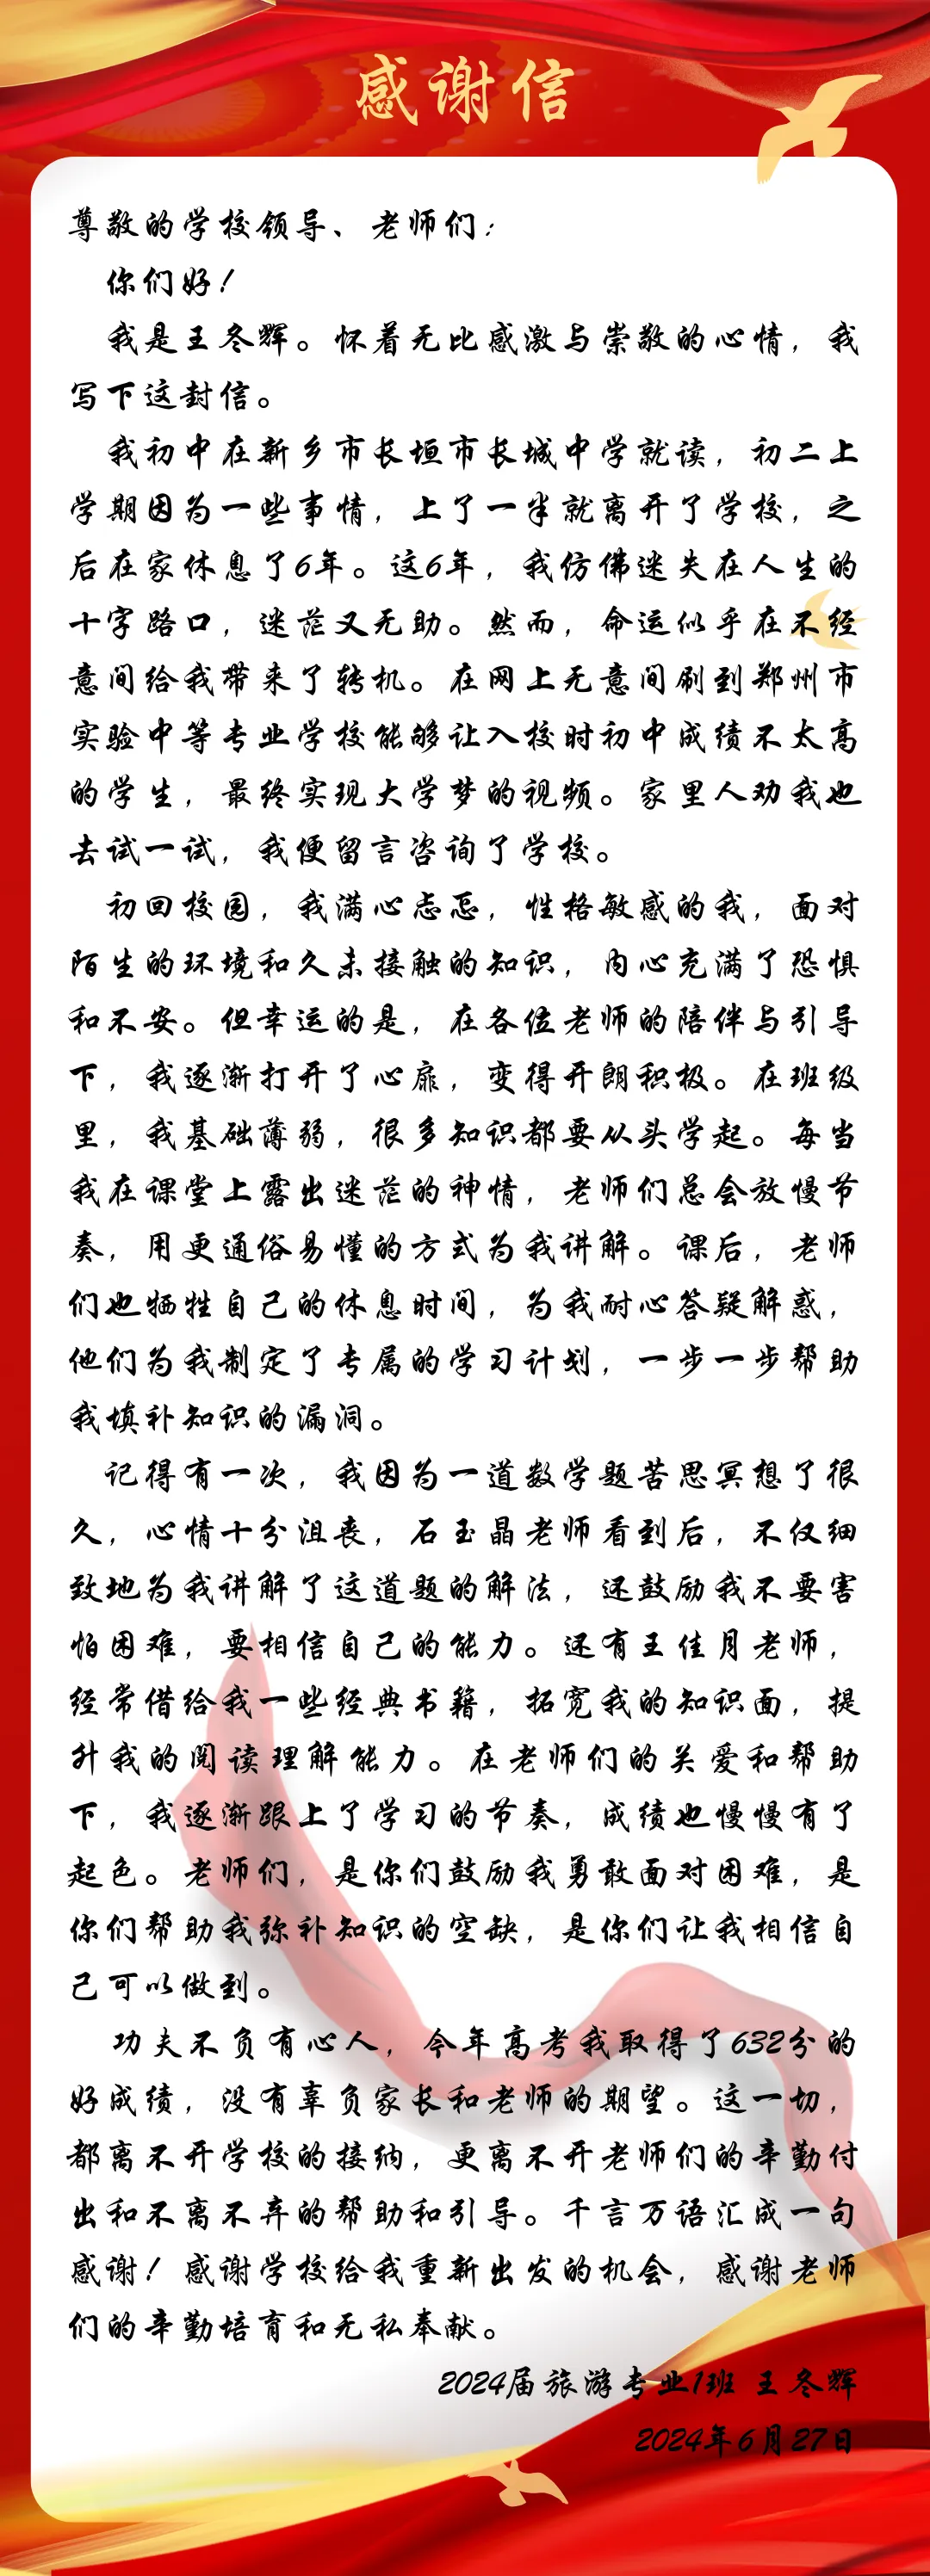 感谢信
尊敬的学校领导、老师们：
你们好！
我是王冬辉。怀着无比感激与崇敬的心情，我
写下这封信。
我初中在新乡市长垣市长城中学就读，初二上
学期因为一些事情，上了一半就离开了学校，之
后在家休息了6年。这6年，我仿佛迷失在人生的
十字路口，迷茫又无助。然而，命运似乎在不经
意间给我带来了转机。在网上无意间刷到郑州市
实验中等专业学校能够让入校时初中成绩不太高
的学生，最终实现大学梦的视频。家里人劝我也
去试一试，我便留言咨询了学校。
初回校园，我满心忐忑，性格敏感的我，面对
陌生的环境和久未接触的知识，内心充满了恐惧
和不安。但幸运的是，在各位老师的陪伴与引导
下，我逐渐打开了心扉，变得开朗积极。在班级
里，我基础薄弱，很多知识都要从头学起。每当
我在课堂上露出迷茫的神情，老师们总会放慢节
奏，用更通俗易懂的方式为我讲解。课后，老师
们也牺牲自己的休息时间，为我耐心答疑解惑，
他们为我制定了专属的学习计划，一步一步帮助
我填补知识的漏洞。
记得有一次，我因为一道数学题苦思冥想了很
久，心情十分沮丧，石玉晶老师看到后，不仅细
致地为我讲解了这道题的解法，还鼓励我不要害
怕困难，要相信自己的能力。还有王佳月老师，
经常借给我一些经典书籍，拓宽我的知识面，提
升我的阅读理解能力。在老师们的关爱和帮助
下，我逐渐跟上了学习的节奏，成绩也慢慢有了
起色。老师们，是你们鼓励我勇敢面对困难，是
你们帮助我弥补知识的空缺，是你们让我相信自
己可以做到。
功夫不负有心人，今年高考我取得了632分的
好成绩，没有辜负家长和老师的期望。这一切，
都离不开学校的接纳，更离不开老师们的辛勤付
出和不离不弃的帮助和引导。千言万语汇成一句
感谢！感谢学校给我重新出发的机会，感谢老师
们的辛勤培育和无私奉献。
2024届旅游专业1班 王冬辉
2024年6月27日